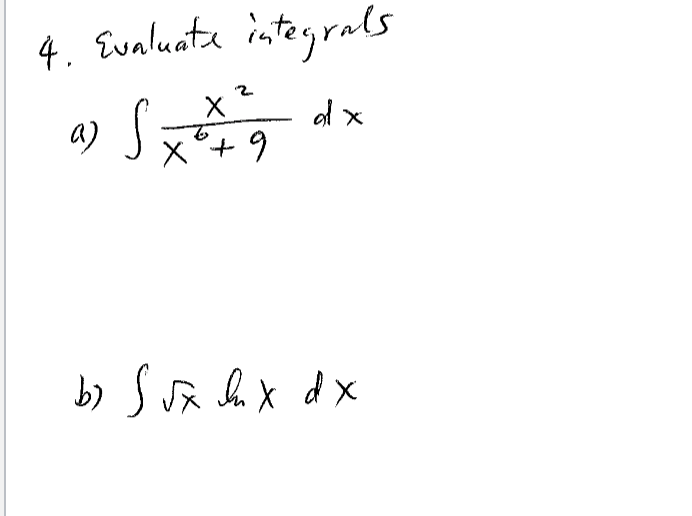 4. Evaluate integrals
a) ∫ x² / (x⁶ + 9) dx
b) ∫ √x ln x dx